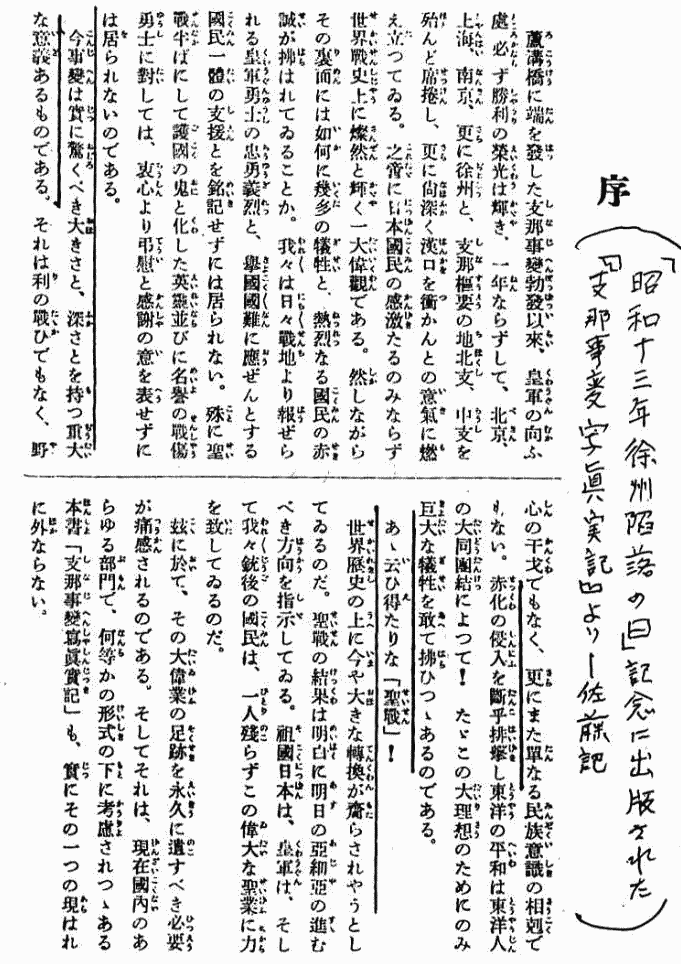 序
(「昭和十三年徐州陥落の日」記念に出版された
『支那事変写真実記』より―佐藤記)
蘆溝橋に端を發した支那事變勃發以來、皇軍の向ふ
處必ず勝利の榮光は輝き、一年ならずして、北京、
上海、南京、更に徐州と、支那樞要の地北支、中支を
殆んど席捲し、更に尙深く漢口を衝かんとの意氣に燃
え立つてゐる。之啻に日本國民の感激たるのみならず
世界戰史上に燦然と輝く一大偉觀である。然しながら
その裏面には如何に幾多の犠牲と、熱烈なる國民の赤
誠が拂はれてゐることか。我々は日々戰地より報ぜら
れる皇軍勇士の忠勇義烈と、擧國國難に應ぜんとする
國民一體の支援とを銘記せずには居られない。殊に聖
戰半ばにして護國の鬼と化した英靈並びに名譽の戰傷
勇士に對しては、衷心より弔慰と感謝の意を表せずに
は居られないのである。
今事變は實に驚くべき大きさと、深さとを持つ重大
な意義あるものである。それは利の戰ひでもなく、野
心の干戈でもなく、更にまた單なる民族意識の相剋で
もない。赤化の侵入を斷乎排擊し東洋の平和は東洋人
の大同團結によつて！たゞこの大理想のためにのみ
巨大な犠牲を敢て拂ひつゝあるのである。
あゝ云ひ得たりな「聖戰」！
世界歷史の上に今や大きな轉換が齎らされやうとし
てゐるのだ。聖戰の結果は明白に明日の亞細亞の進む
べき方向を指示してゐる。祖國日本は、皇軍は、そし
て我々銃後の國民は、一人殘らずこの偉大な聖業に力
を致してゐるのだ。
玆に於て、その大偉業の足跡を永久に遺すべき必要
が痛感されるのである。そしてそれは、現在國內のあ
らゆる部門で、何等かの形式の下に考慮されつゝある
本書「支那事變寫眞實記」も、實にその一つの現はれ
に外ならない。